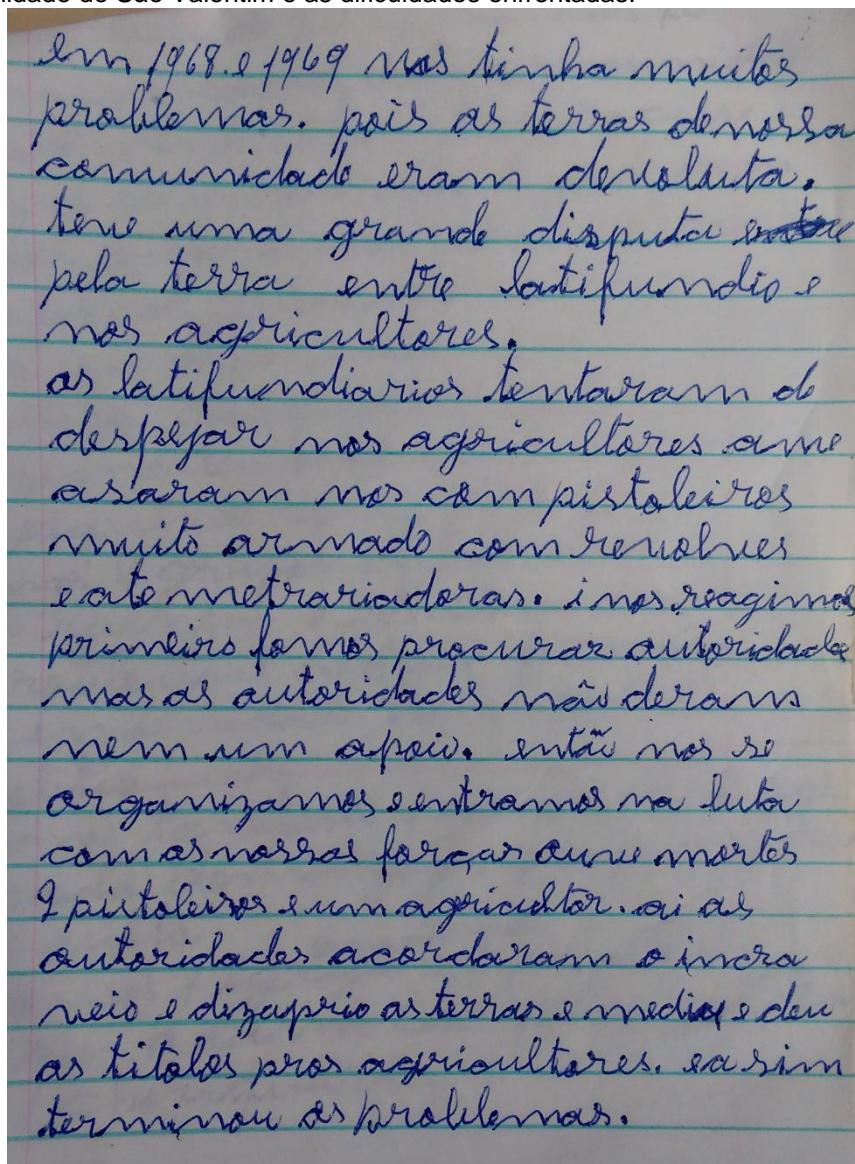 lidade de São Valentim e as dificuldades enfrentadas.
em 1968 e 1969 nos tinha muitos
problemas. pois as terras denossa
comunidade eram devoluta.
teve uma grande disputa entre
pela terra entre latifundio e
nos agricultores.
os latifundiarios tentaram de
despejar nos agricultores ame
asaram nos com pistoleiros
muito armado com revolves
e ate metrariadoras. i nos reagimos
primeiro fomos procurar autoridades
mas as autoridades não deram
nem um apoio. então nos se
organizamos e entramos na luta
com as nossas forças ouve mortes
pistoleiros e um agricultor. ai as
autoridades acordaram o incra
veio e dizaprio as terras e mediu e deu
os titolos pros agricultores. ea sim
terminou os problemas.